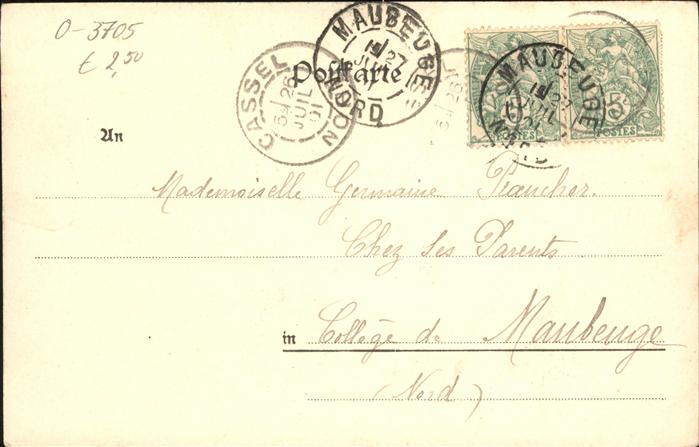 O-3705
£ 2,50
Postkarte
CASSEL NORD
6E 26
JUIL
01
MAUBEUGE
27
JUIL
NORD
MAUBEUGE
27
JUIL
POSTES
5c
POSTES
An
Mademoiselle Germaine Plancher.
Chez ses Parents
in Collège de Maubeuge
(Nord)